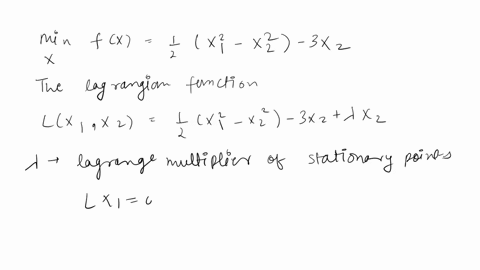 min f(x) = 1/2 (x₁² - x₂²) - 3x₂
x
The lagrangian function
L(x₁, x₂) = 1/2 (x₁² - x₂²) - 3x₂ + λ x₂
λ → lagrange multiplier of stationary points
L x₁ =